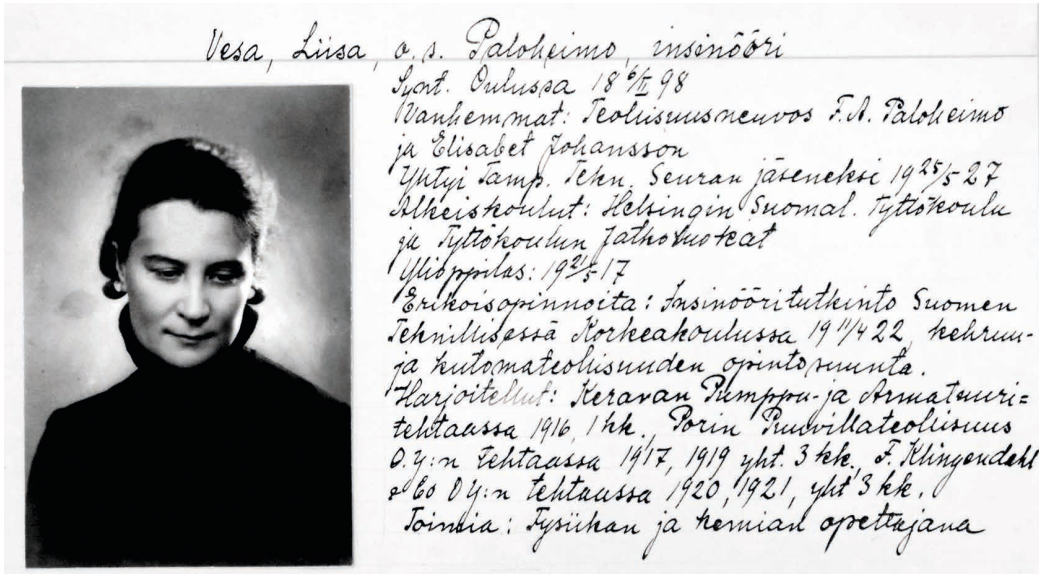 Vesa, Liisa, o.s. Paloheimo, insinööri
Synt. Oulussa 18 6/II 98
Vanhemmat: Teollisuusneuvos F.A. Paloheimo
ja Elisabet Johansson
Yhtyi Tamp. Tekn. Seuran jäseneksi 19 25/5 27
Alkeiskoulut: Helsingin Suomal. Tyttökoulu
ja Tyttökoulun Jatkoluokat
Ylioppilas: 19 21/5 17
Erikoisopinnoita: Insinööritutkinto Suomen
Teknillisessä Korkeakoulussa 19 11/4 22, kehruu-
ja kutomateollisuuden opintosuunta.
Harjoitellut: Keravan Pumppu- ja Armatuuri=
tehtaassa 1916, 1 kk., Porin Puuvillateollisuus
O.Y:n tehtaassa 1917, 1919 yht. 3 kk., F. Klingendahl
& Co OY:n tehtaassa 1920, 1921, yht 3 kk.
Toimia: Fysiikan ja kemian opettajana